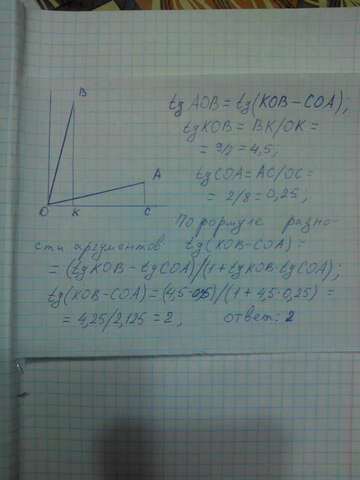 B
A
O K C
tg AOB = tg(KOB-COA);
tg KOB = BK/OK =
= 9/2 = 4,5;
tg COA = AC/OC =
= 2/8 = 0,25;
По формуле разно-
сти аргументов tg(KOB-COA) =
= (tg KOB - tg COA)/(1+tg KOB·tg COA);
tg(KOB-COA) = (4,5-0,25)/(1+4,5·0,25) =
= 4,25/2,125 = 2, ответ: 2